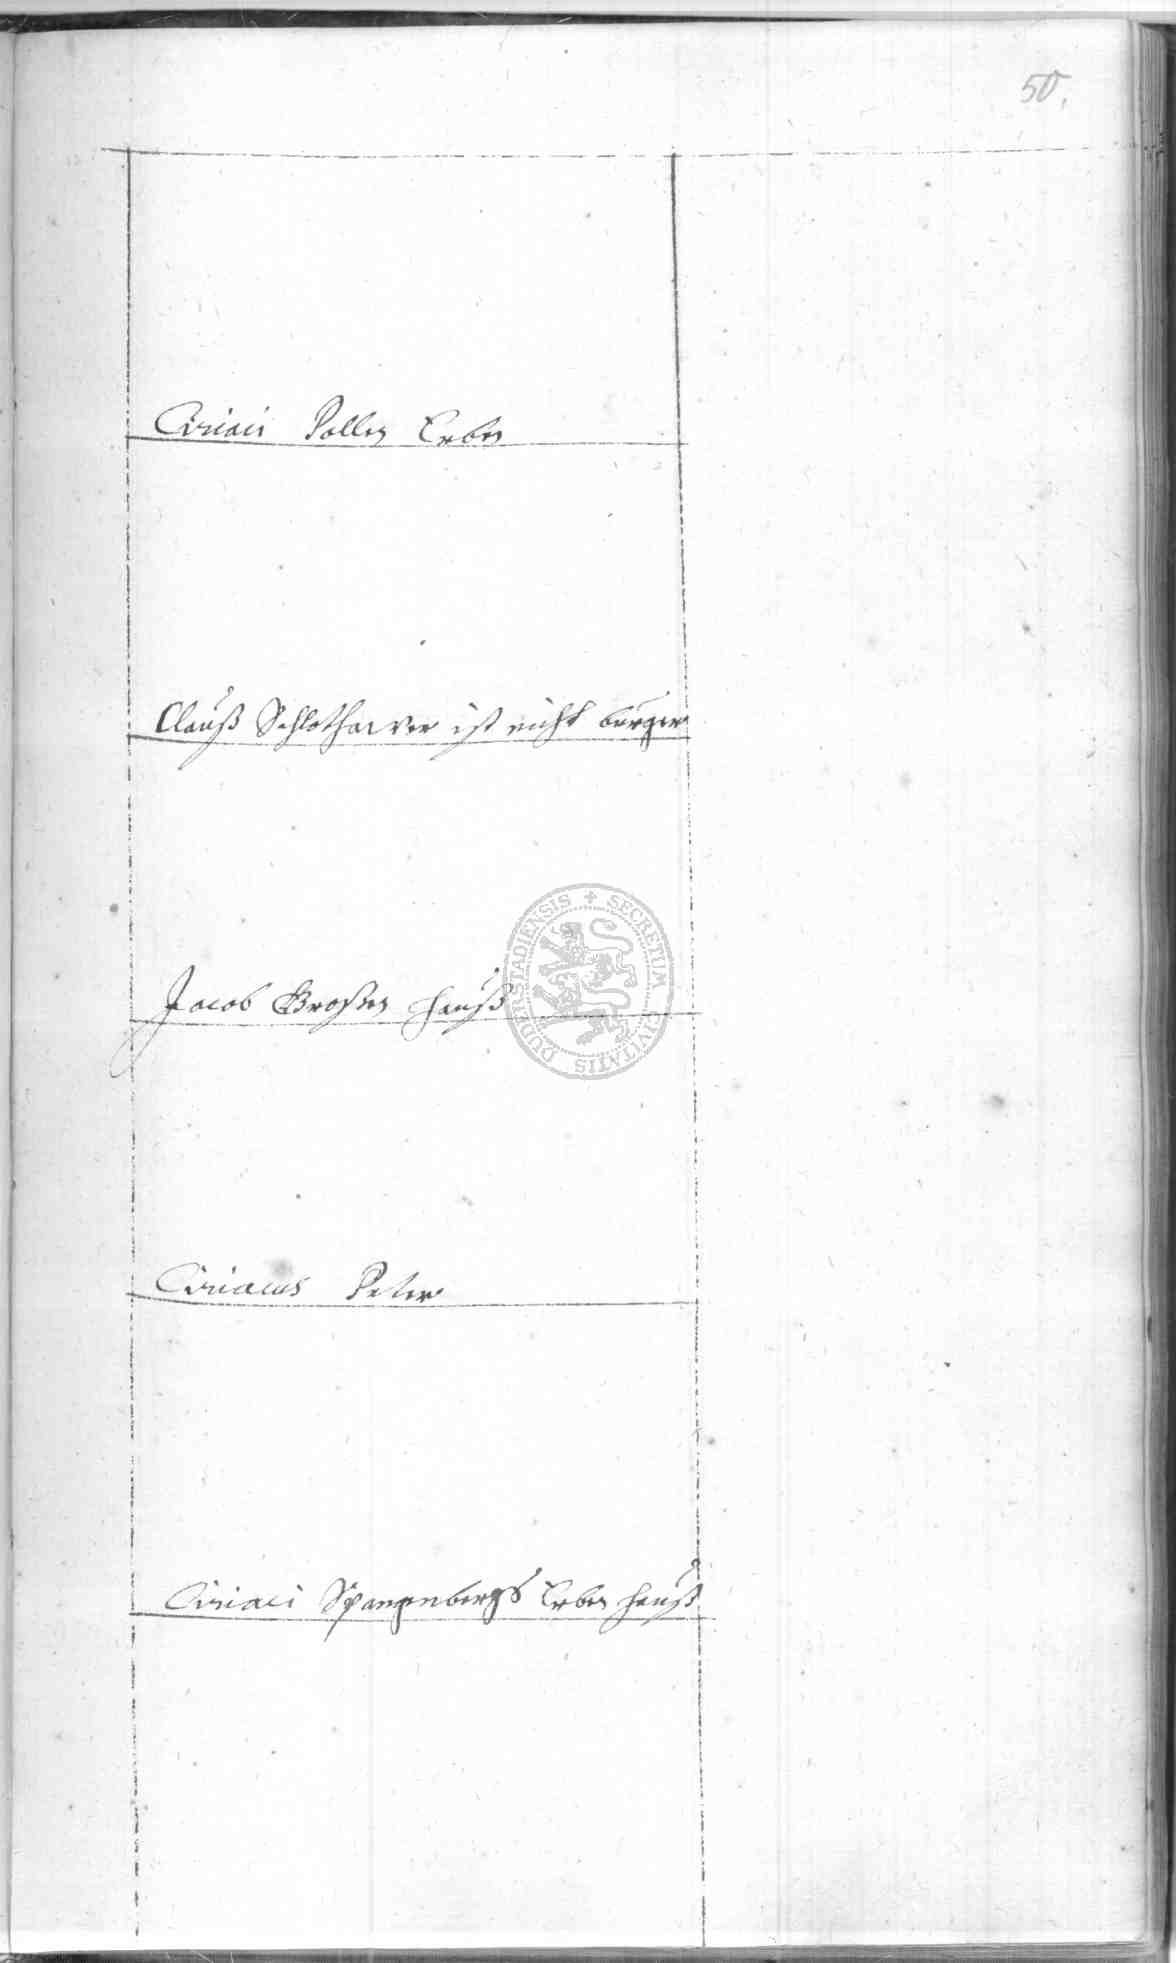 50.
Ciriaci Pollen Erben
Clauß Schlothawer ist nicht burger
Jacob Großen hauß
SECRETUM CIVITATIS DUDERSTADIENSIS
Ciriacus Peter
Ciriaci Spangenbergs Erben hauß